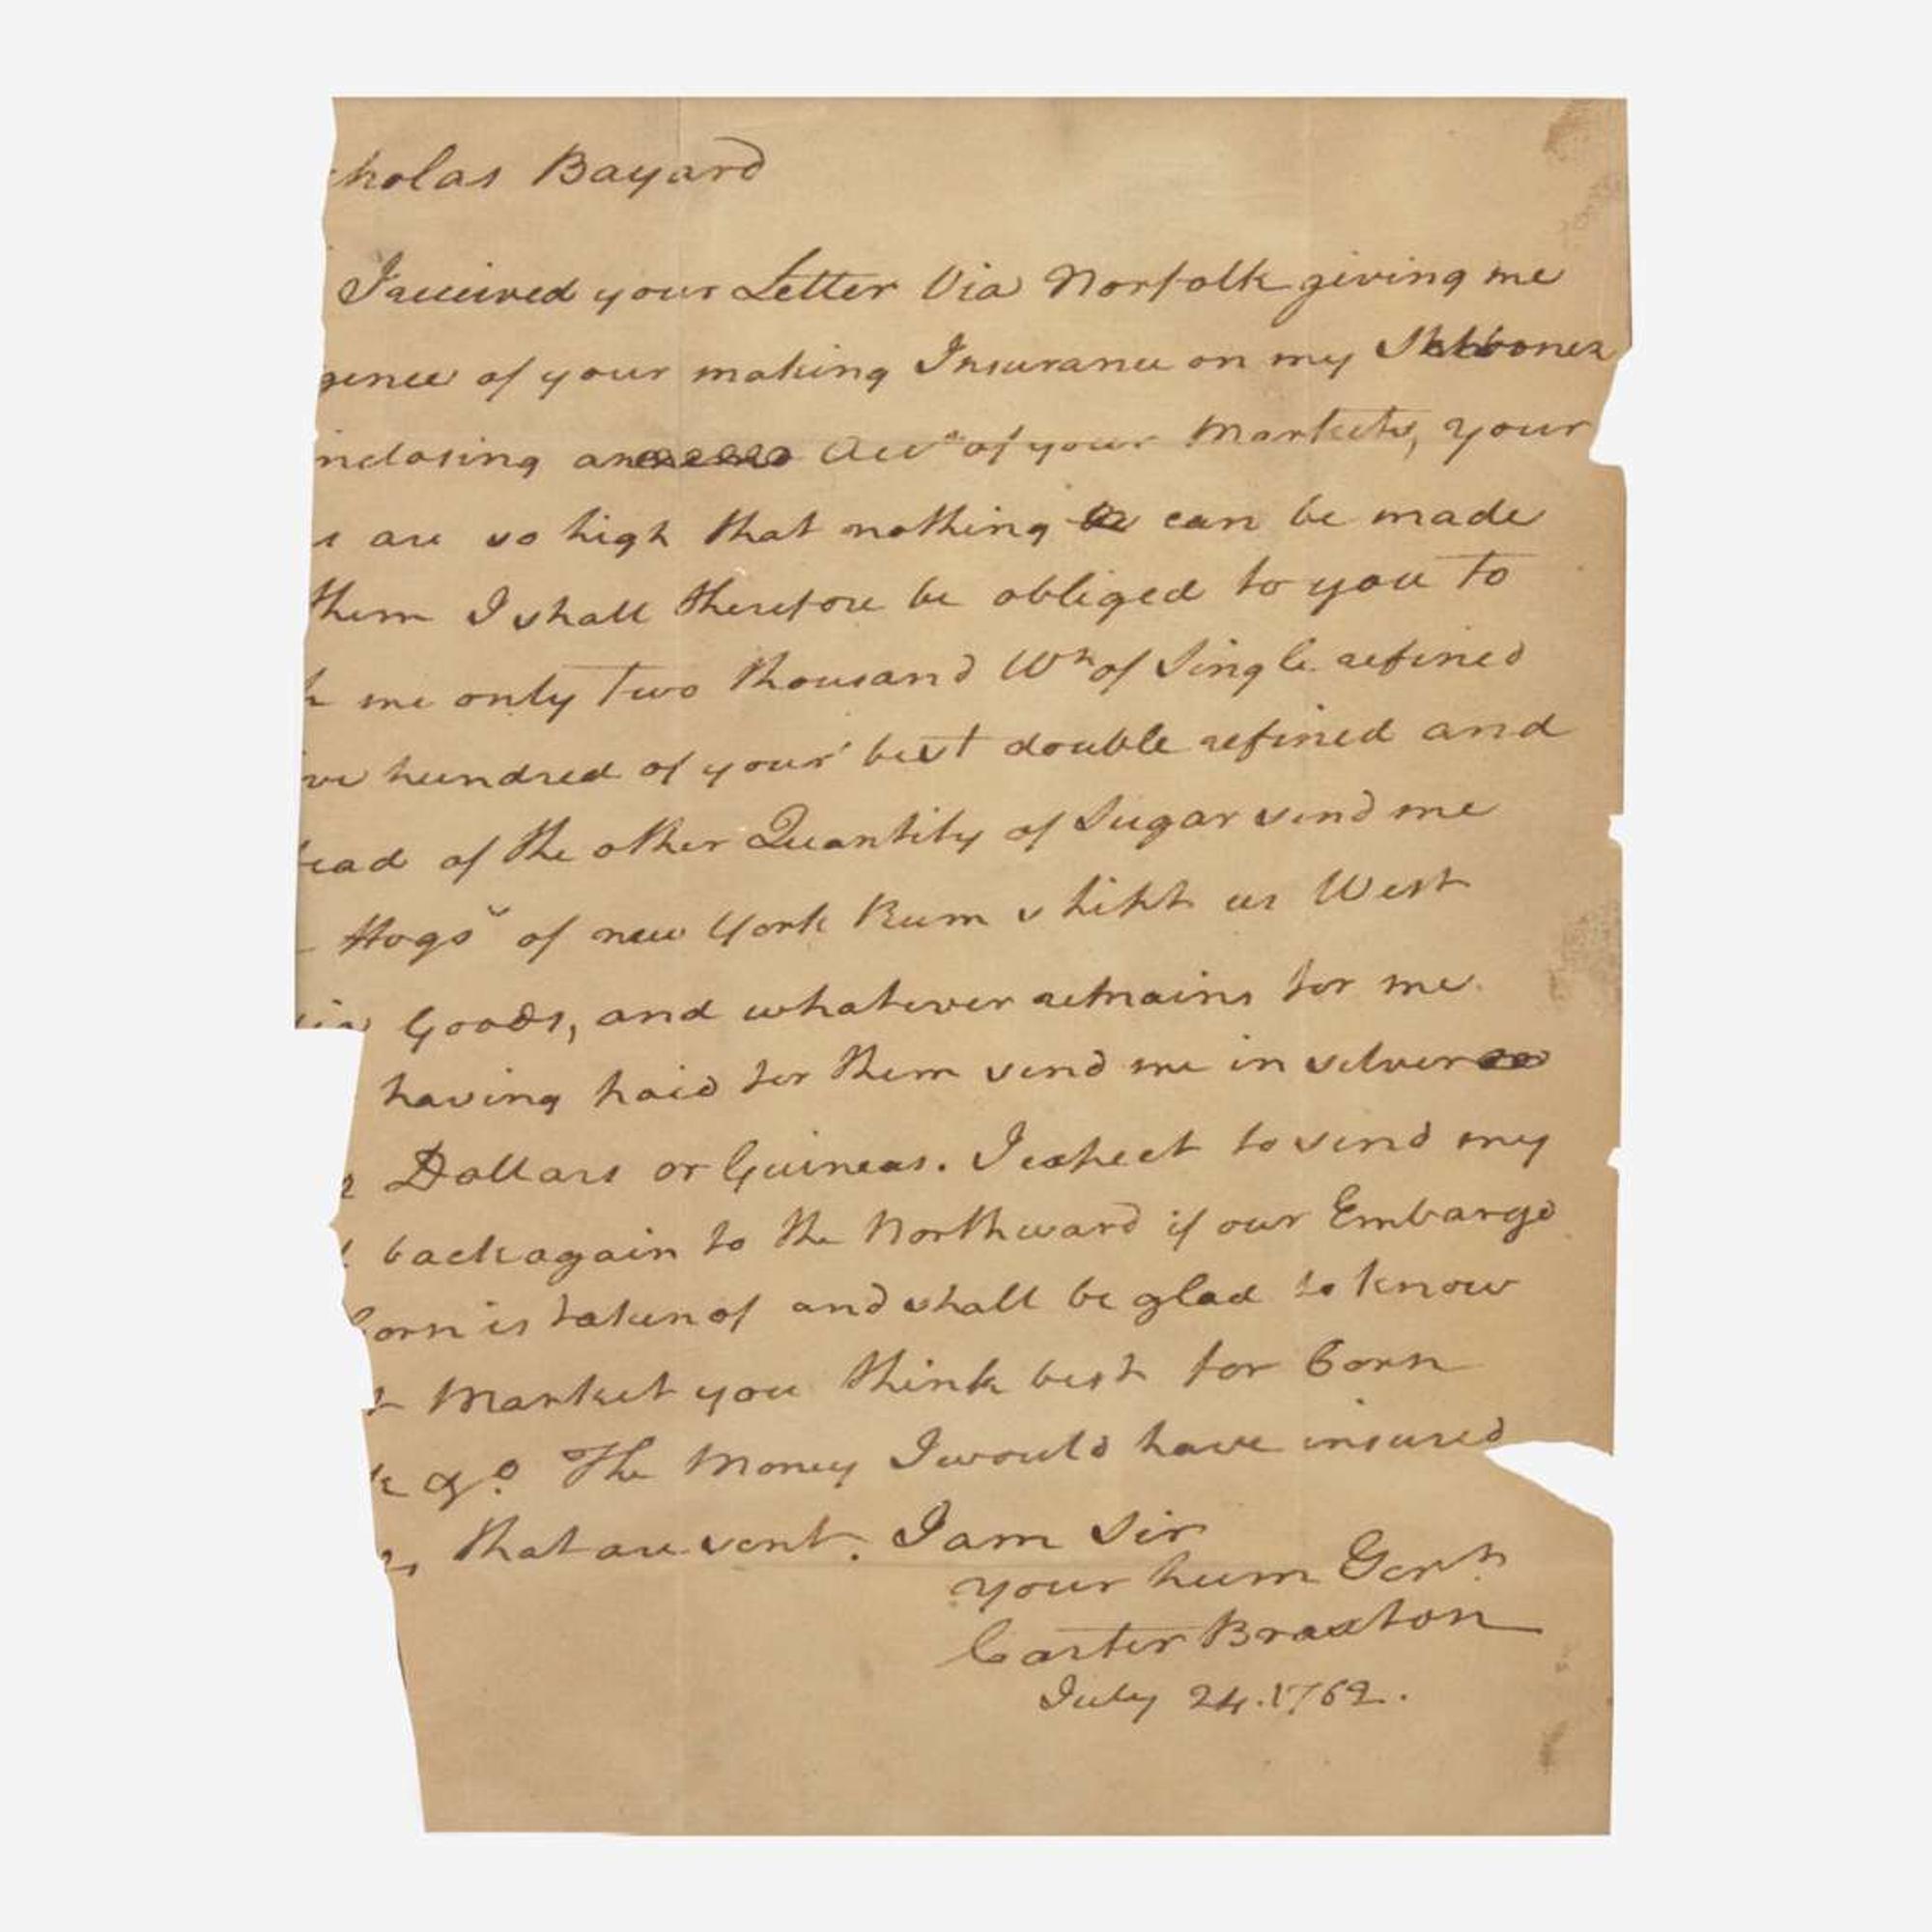 cholas Bayard
I received your Letter Via Norfolk giving me
gence of your making Insurance on my Schooner
nclosing an Acct of your Markets, your
s are so high that nothing can be made
them I shall therefore be obliged to you to
me only Two Thousand Wt of Single refined
ve hundred of your best double refined and
tead of the other Quantity of Sugar send me
Hogs of new York Rum shipt as West
Goods, and whatever remains for me
having paid for them send me in silver
Dollars or Guineas. I expect to send my
back again to the Northward if our Embargo
Corn is taken of and shall be glad to know
t Market you think best for Corn
The Money I would have insured
that are sent. I am Sir
your hum Servt
Carter Braxton
July 24. 1762.